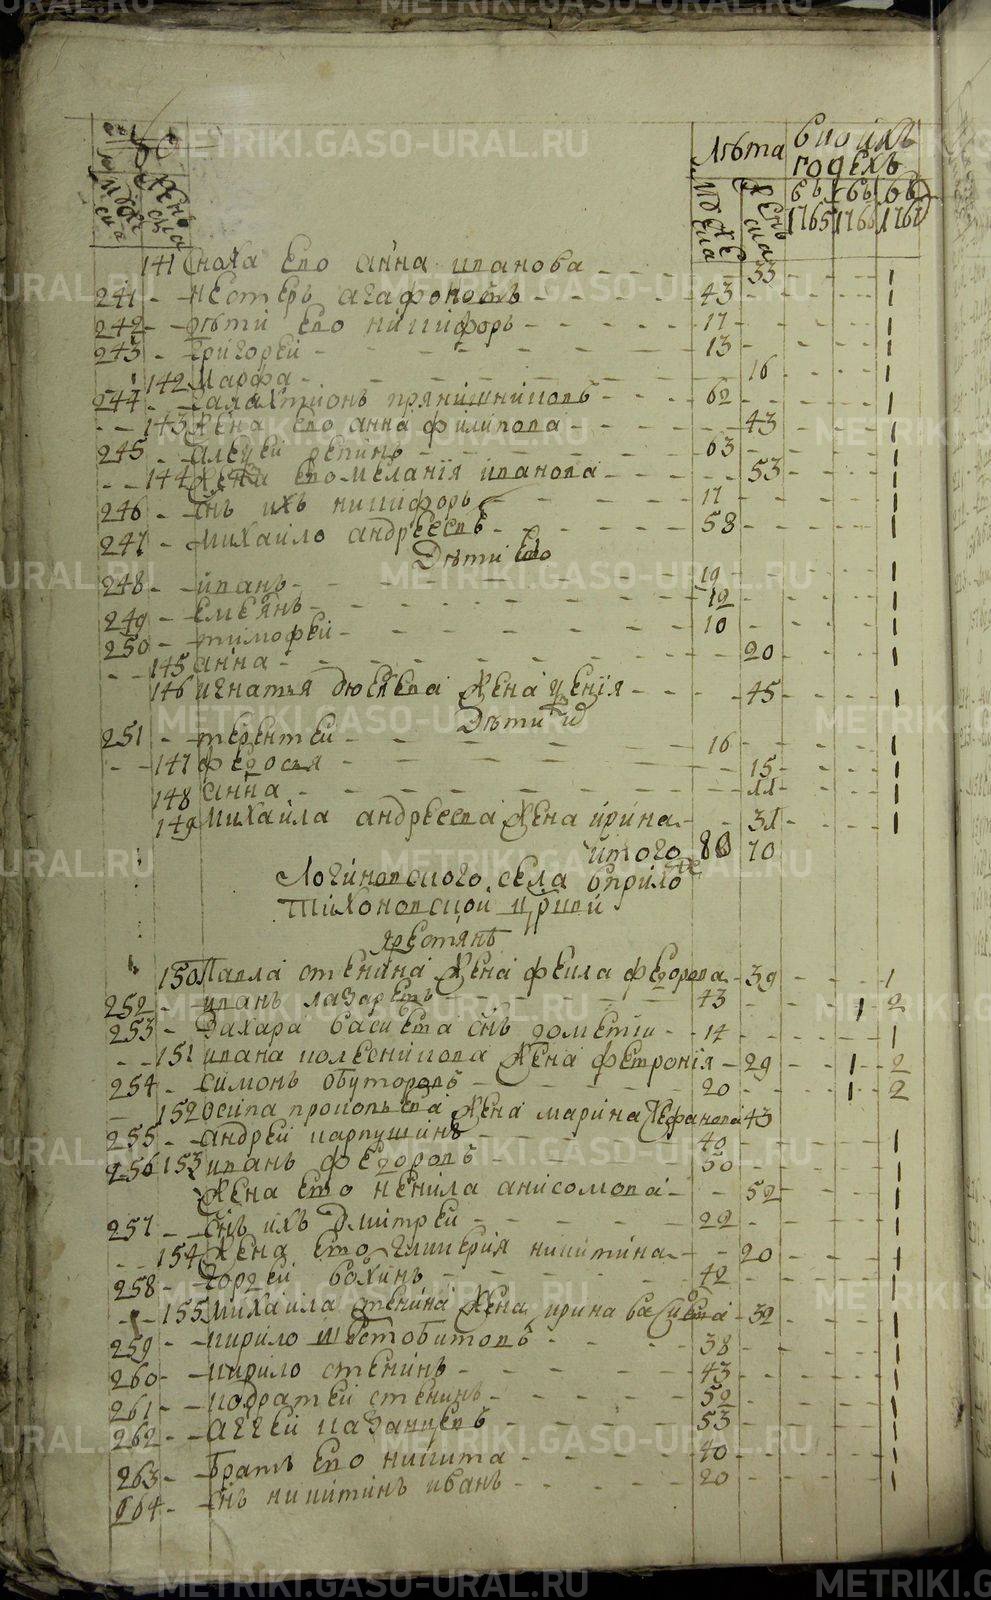 METRIKI.GASO-URAL.RU
лѣта
въ коихъ годехъ
мужеска женска
мужеска женска
въ 1765 въ 1766 въ 1767
141 сноха ево анна иванова - 53 - - 1
241 - нестеръ агафоновъ - 43 - - 1
242 - дѣти ево никифоръ - 17 - - 1
243 - григорей - 13 - - 1
142 марфа - 16 - - 1
244 - галахтионъ прянишниковъ - 62 - - 1
143 жена ево анна филипова - 43 - - 1
245 - алексей репинъ - 63 - - 1
144 жена ево меланія иванова - 53 - - 1
246 - снъ ихъ никифоръ - 17 - - 1
247 - михайло андреевъ - 58 - - 1
дѣти ево
248 - иванъ - 19 - - 1
249 - емелянъ - 12 - - 1
250 - тимофей - 10 - - 1
145 анна - 20 - - 1
146 игнатья жена ксенія - 45 - - 1
дѣти ея
251 - терентей - 16 - - 1
147 федосья - 15 - - 1
148 анна - 11 - - 1
149 михайла андреева жена ирина - 31 - - 1
итого 80 70
логиновского села
тихоновской црквй
крестянъ
150 павла стенина жена фекла федорова - 39 - - 1
252 - иванъ лазаревъ - 43 - 1 2
253 - захара василева снъ дометти - 14 - - 1
151 ивана колесникова жена фетронія - 29 - 1 2
254 - симонъ обуторовъ - 20 - 1 2
152 осипа прокопьева жена марина 43
255 - андрей карпушинъ - 40 - - 1
256 153 иванъ федоровъ - 50 - - 1
жена ево ненила анисомова - 52 - - 1
257 - снъ ихъ дмитрей - 22 - - 1
154 жена ево гликерия никитина - 20 - - 1
258 - гордей бохинъ - 42 - - 1
155 михаила стенина жена ирина василева - 32 - - 1
259 - кирило шестобитовъ - 38 - - 1
260 - кирило стенинъ - 43 - - 1
261 - кодратей стенинъ - 52 - - 1
262 - аггей казанцевъ - 53 - - 1
263 - братъ ево никита - 40 - - 1
264 - снъ никитинъ иванъ - 20 - - 1